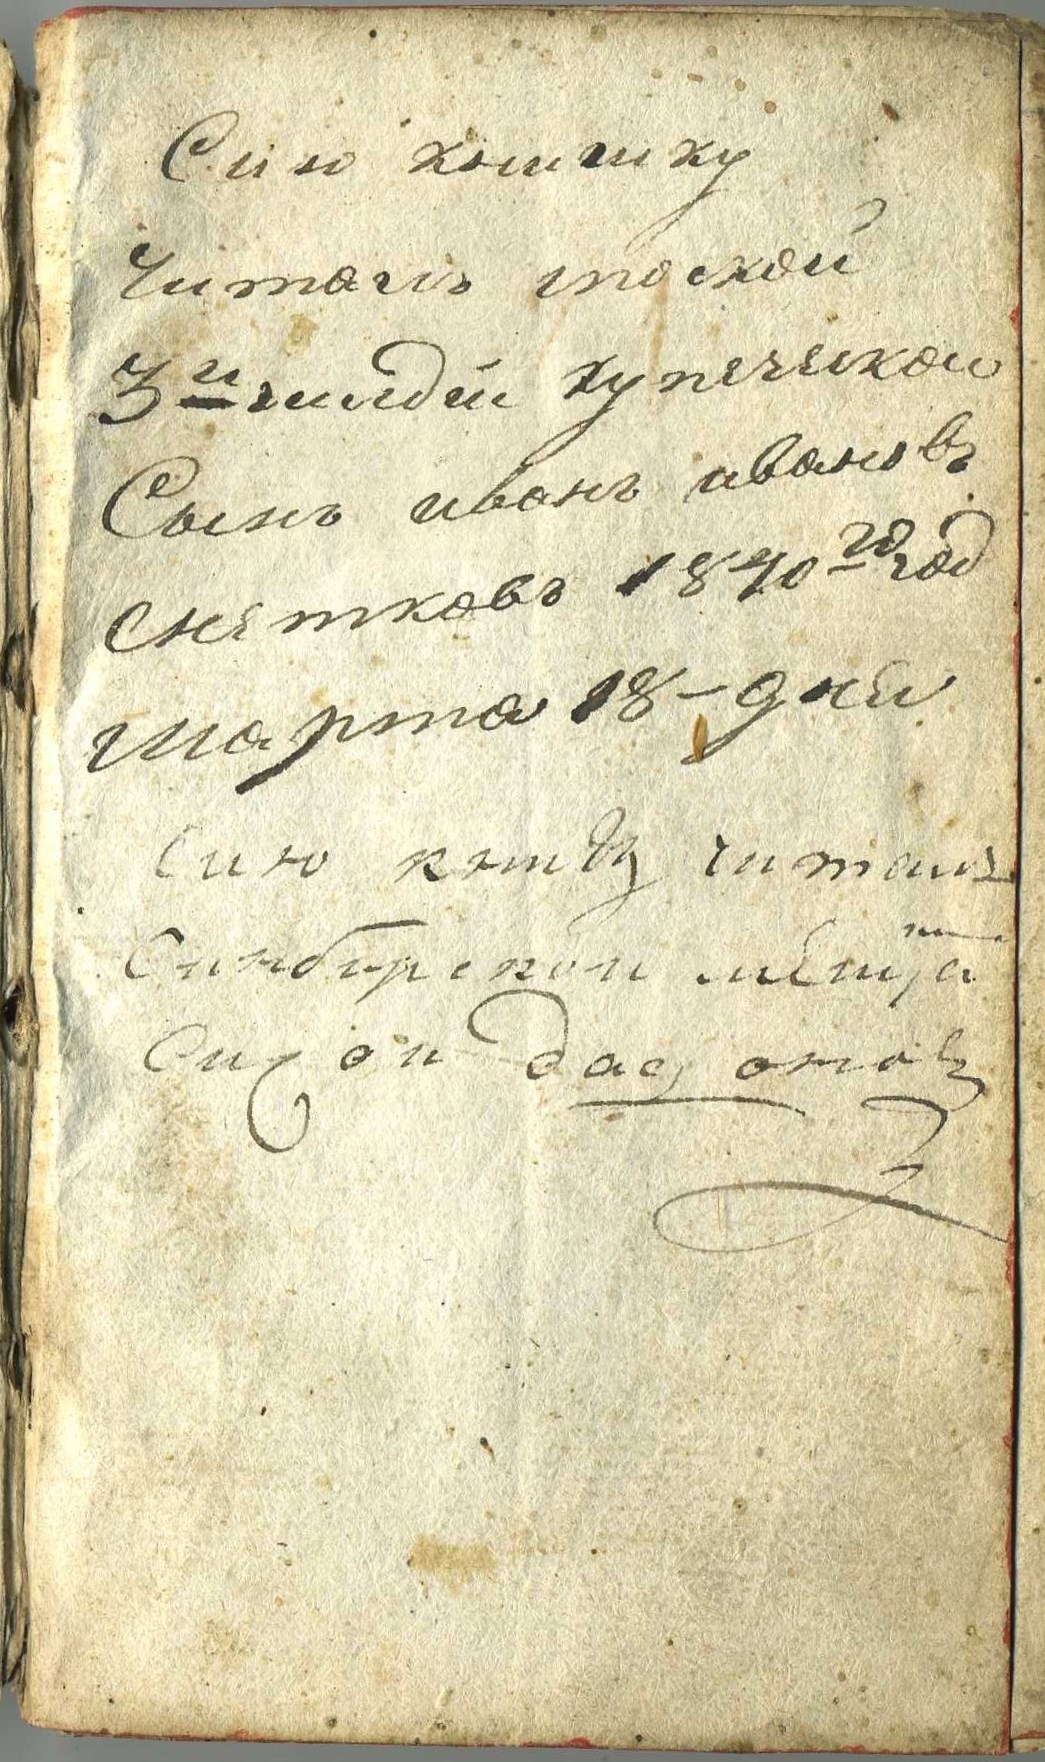 Сию книшку
Читалъ таской
3й гилдии купеческой
Сынъ иванъ ивановъ
снетковъ 1840го год
марта 18 – дня
Сию книгу читалъ
Синбирской